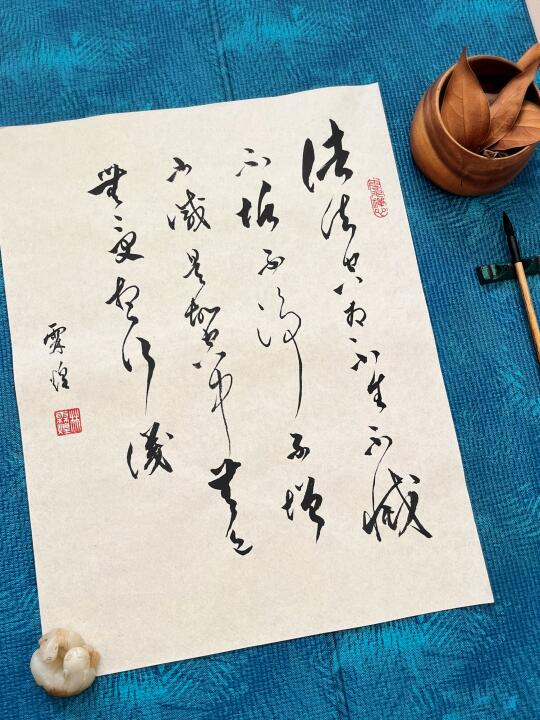 諸法空相不生不滅
不垢不淨不增
不減是故空中無色
無受想行識
煌